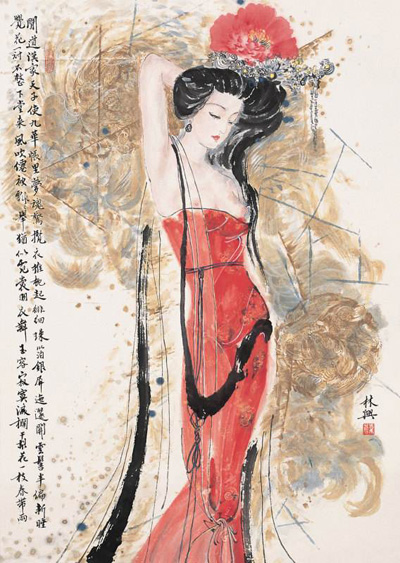 聞道漢家天子使九華帳里夢魂驚攬衣推枕起徘徊珠箔銀屏迤邐開雲鬢半偏新睡
覺花冠不整下堂來風吹僊袂飄舉猶似霓裳羽衣舞玉容寂寞淚欄干梨花一枝春帶雨
林興